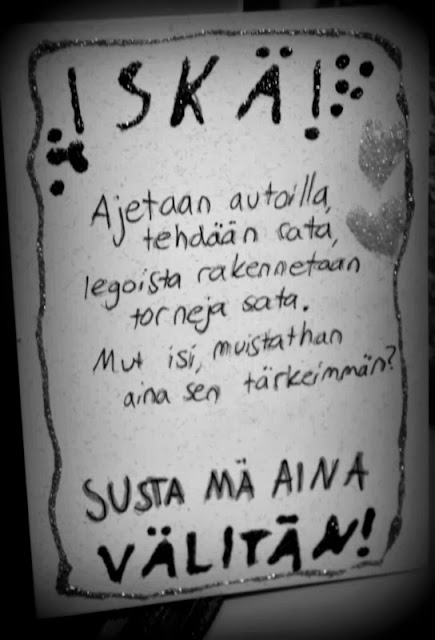 ISKÄ!
Ajetaan autoilla,
tehdään rata,
legoista rakennetaan
torneja sata.
Mut isi, muistathan
aina sen tärkeimmän?
SUSTA MÄ AINA
VÄLITÄN!